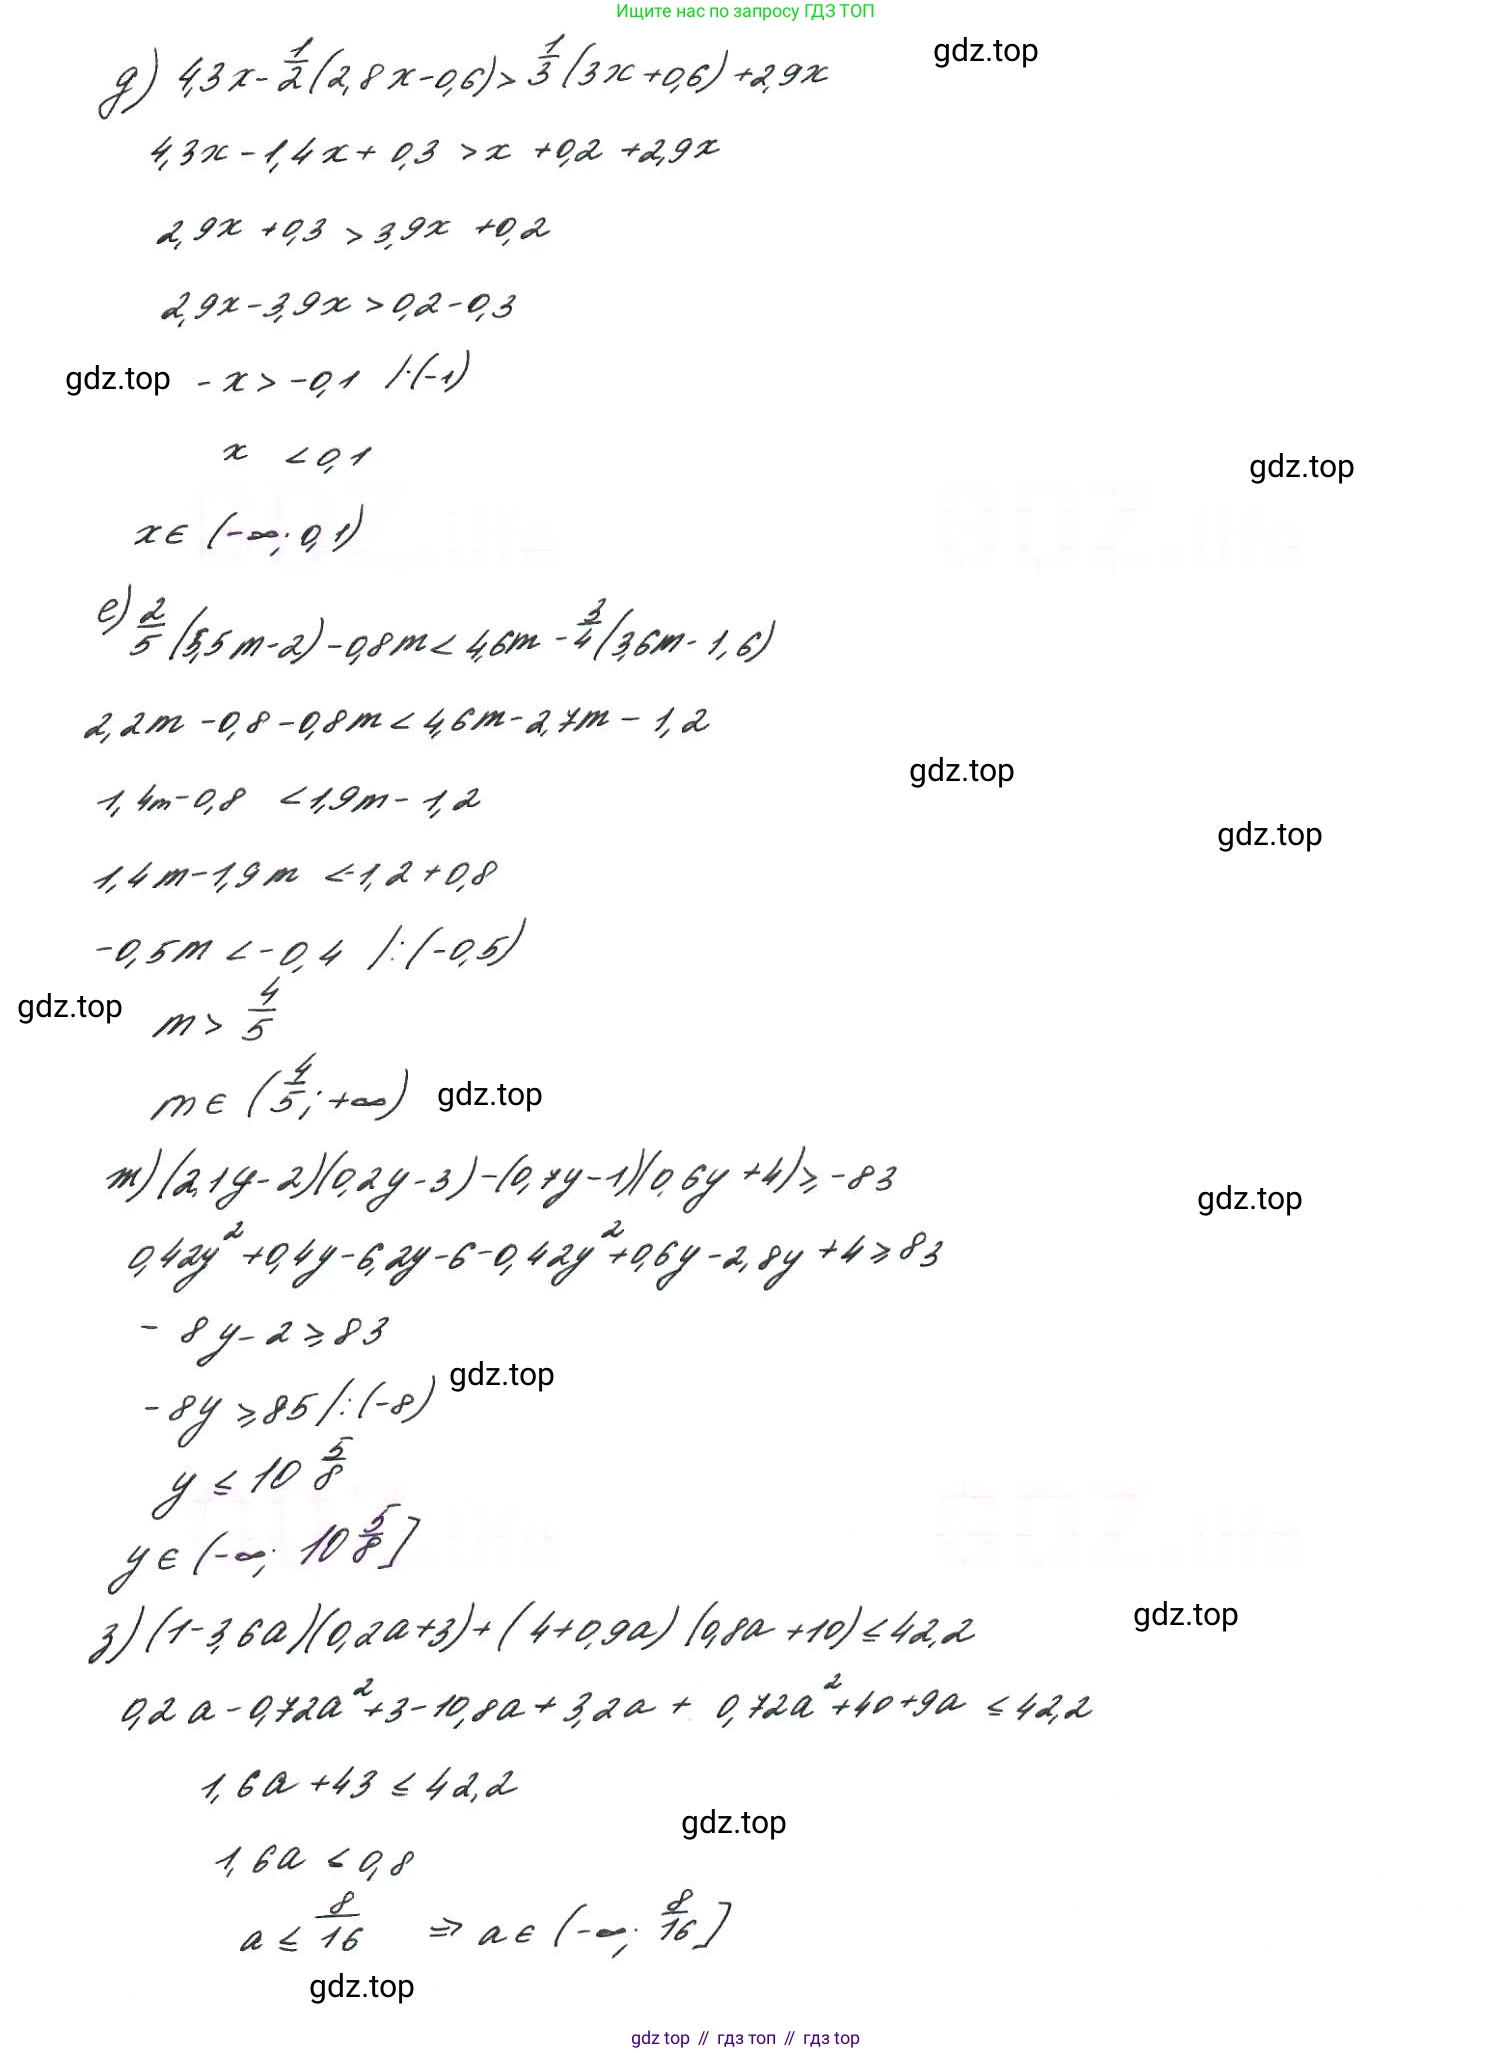 Ищите нас по запросу ГДЗ ТОП
gdz.top
д) 4,3x - 1/2 (2,8x - 0,6) > 1/3 (3x + 0,6) + 2,9x
4,3x - 1,4x + 0,3 > x + 0,2 + 2,9x
2,9x + 0,3 > 3,9x + 0,2
2,9x - 3,9x > 0,2 - 0,3
gdz.top
-x > -0,1 /·(-1)
x < 0,1
gdz.top
x ∈ (-∞; 0,1)
е) 2/5 (5,5m - 2) - 0,8m < 4,6m - 3/4 (3,6m - 1,6)
2,2m - 0,8 - 0,8m < 4,6m - 2,7m - 1,2
gdz.top
1,4m - 0,8 < 1,9m - 1,2
gdz.top
1,4m - 1,9m < -1,2 + 0,8
-0,5m < -0,4 /:(-0,5)
gdz.top
m > 4/5
m ∈ (4/5; +∞)
gdz.top
ж) (2,1y - 2)(0,2y - 3) - (0,7y - 1)(0,6y + 4) ≥ -83
gdz.top
0,42y² + 0,4y - 6,2y - 6 - 0,42y² + 0,6y - 2,8y + 4 ≥ 83
- 8y - 2 ≥ 83
gdz.top
- 8y ≥ 85 /:(-8)
y ≤ 10 5/8
y ∈ (-∞; 10 5/8]
з) (1 - 3,6a)(0,2a + 3) + (4 + 0,9a) (0,8a + 10) ≤ 42,2
gdz.top
0,2a - 0,72a² + 3 - 10,8a + 3,2a + 0,72a² + 40 + 9a ≤ 42,2
1,6a + 43 ≤ 42,2
gdz.top
1,6a ≤ 0,8
a ≤ 8/16 ⇒ a ∈ (-∞; 8/16]
gdz.top
gdz top // гдз топ // гдз top